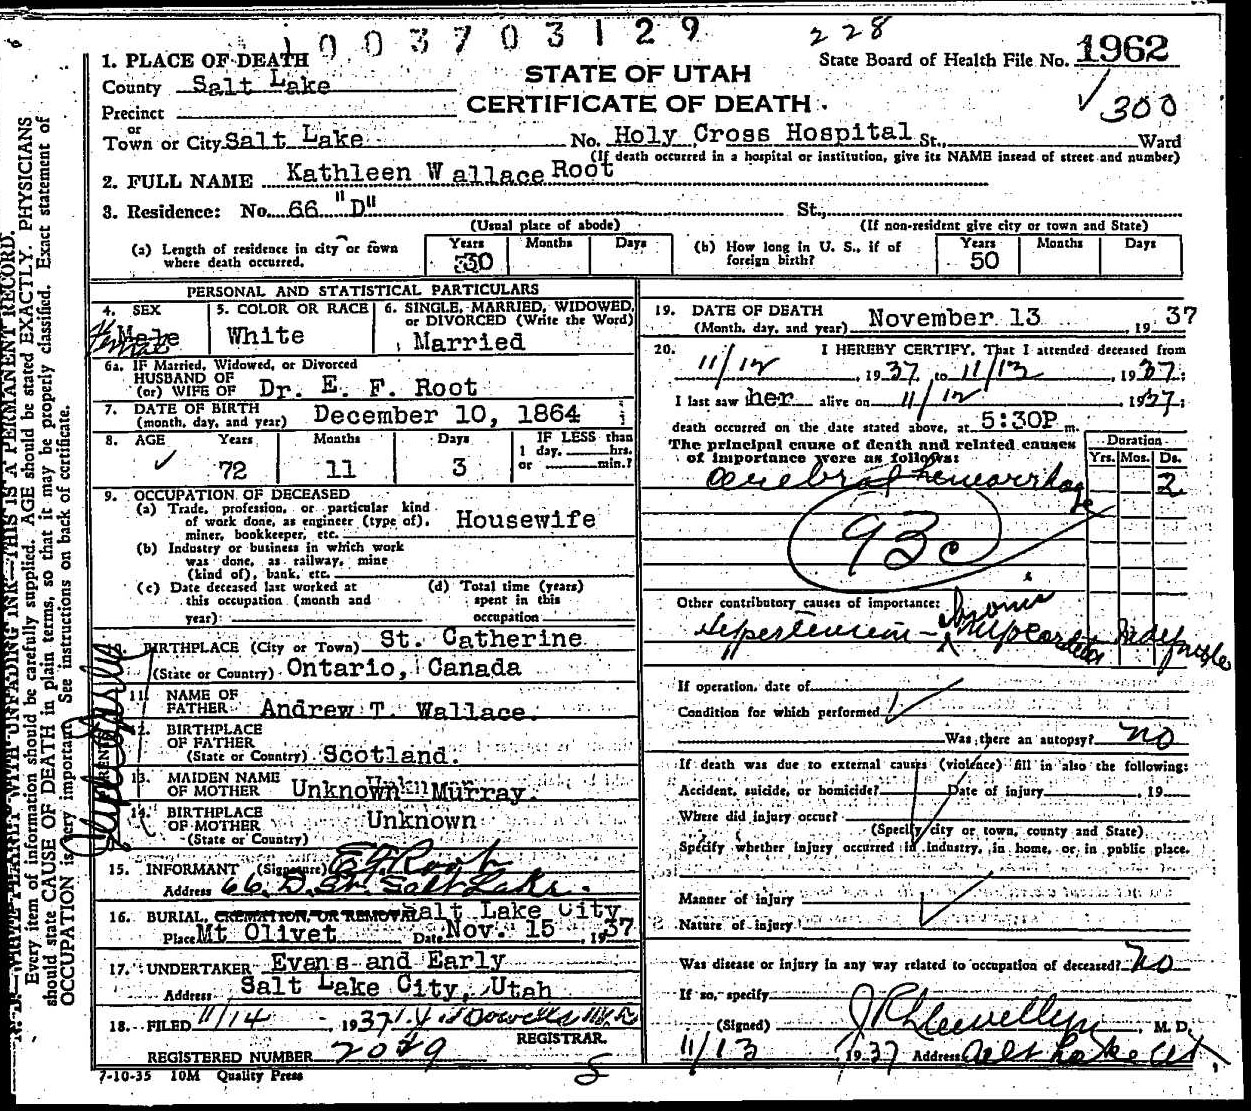 1003703129
228
State Board of Health File No. 1962
✓300
STATE OF UTAH
CERTIFICATE OF DEATH
1. PLACE OF DEATH
County Salt Lake
Precinct
or
Town or City Salt Lake No. Holy Cross Hospital St., Ward
(If death occurred in a hospital or institution, give its NAME insead of street and number)
2. FULL NAME Kathleen Wallace Root
3. Residence: No. 66 "D" St.,
(Usual place of abode) (If non-resident give city or town and State)
(a) Length of residence in city or town where death occurred. Years 30 Months Days
(b) How long in U. S., if of foreign birth? Years 50 Months Days
PERSONAL AND STATISTICAL PARTICULARS
4. SEX Male Female
5. COLOR OR RACE White
6. SINGLE, MARRIED, WIDOWED, or DIVORCED (Write the Word) Married
6a. IF Married, Widowed, or Divorced
HUSBAND OF
(or) WIFE OF Dr. E. F. Root
7. DATE OF BIRTH
(month, day, and year) December 10, 1864
8. AGE Years 72 Months 11 Days 3 IF LESS than 1 day, hrs. or min.?
9. OCCUPATION OF DECEASED
(a) Trade, profession, or particular kind
of work done, as engineer (type of),
miner, bookkeeper, etc. Housewife
(b) Industry or business in which work
was done, as railway, mine
(kind of), bank, etc.
(c) Date deceased last worked at
this occupation (month and
year)
(d) Total time (years)
spent in this
occupation
BIRTHPLACE (City or Town) St. Catherine
(State or Country) Ontario, Canada
11. NAME OF
FATHER Andrew T. Wallace.
BIRTHPLACE
OF FATHER
(State or Country) Scotland.
13. MAIDEN NAME
OF MOTHER Unknown Murray.
14. BIRTHPLACE
OF MOTHER Unknown
(State or Country)
15. INFORMANT (Signature) E F Root
Address 66 D. St. Salt Lake.
16. BURIAL, CREMATION, OR REMOVAL Salt Lake City
Place Mt Olivet Date Nov. 15, 1937
17. UNDERTAKER Evans and Early
Address Salt Lake City, Utah
18. FILED 11/14 1937
REGISTRAR.
REGISTERED NUMBER 2029
7-10-35 10M Quality Press
19. DATE OF DEATH
(Month, day, and year) November 13 1937
20. I HEREBY CERTIFY, That I attended deceased from
11/12, 1937 to 11/13, 1937;
I last saw her alive on 11/12 1937;
death occurred on the date stated above, at 5:30P m.
The principal cause of death and related causes
of importance were as follows:
Duration
Yrs. Mos. Ds.
Cerebral hemorrhage 2
93c
Other contributory causes of importance:
Hypertension - Chronic Myocarditis
If operation, date of
Condition for which performed
Was there an autopsy? no
If death was due to external causes (violence) fill in also the following:
Accident, suicide, or homicide? Date of injury, 19
Where did injury occur?
(Specify city or town, county and State)
Specify whether injury occurred in industry, in home, or in public place.
Manner of injury
Nature of injury
Was disease or injury in any way related to occupation of deceased? No
If so, specify
(Signed) J P Llewellyn, M. D.
11/13, 1937 Address Salt Lake Ut
N. B.—WRITE PLAINLY WITH UNFADING INK—THIS IS A PERMANENT RECORD.
Every item of information should be carefully supplied. AGE should be stated EXACTLY. PHYSICIANS
should state CAUSE OF DEATH in plain terms, so that it may be properly classified. Exact statement of
OCCUPATION is very important. See instructions on back of certificate.